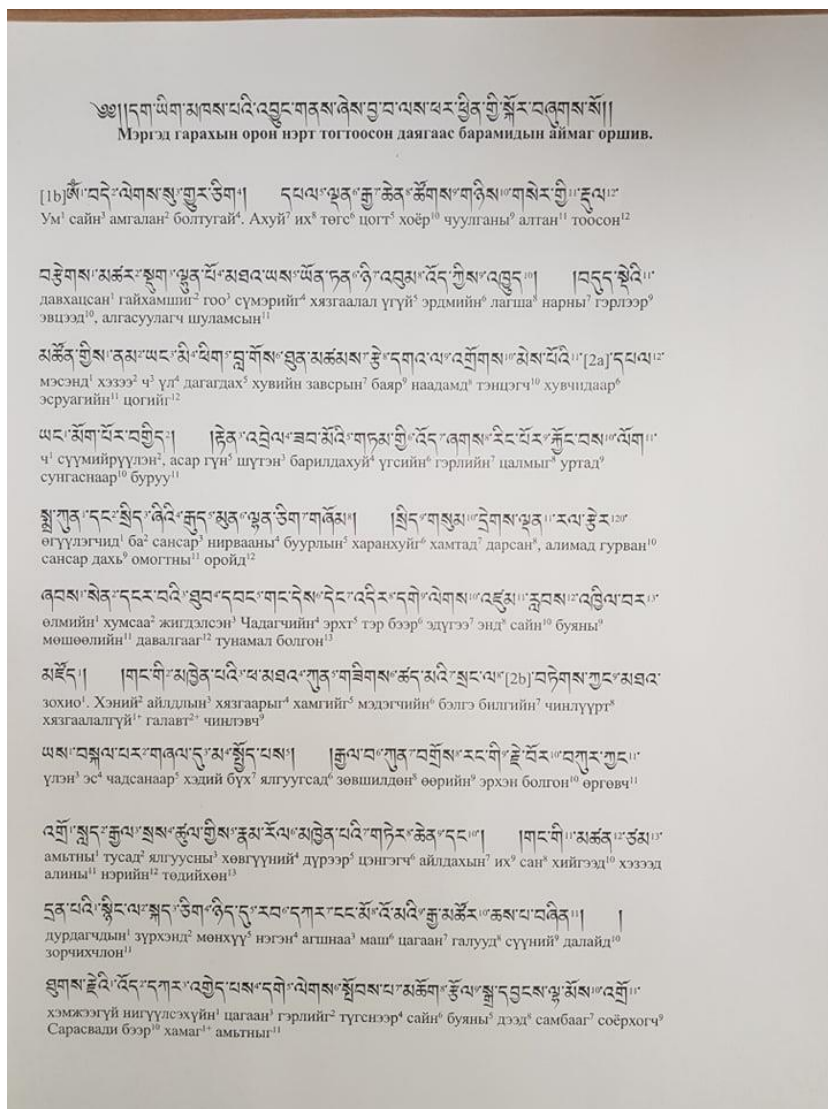 ༄༅།།དག་ཡིག་མཁས་པའི་འབྱུང་གནས་ཞེས་བྱ་བ་ལས་ཕར་ཕྱིན་གྱི་སྐོར་བཞུགས་སོ།།
Мэргэд гарахын орон нэрт тогтоосон даягаас барамидын аймаг оршив.
[1b]ༀ¹་བདེ²་ལེགས³་སུ་གྱུར་ཅིག⁴། དཔལ⁵་ལྡན⁶་རྒྱ⁷་ཆེན⁸་ཚོགས⁹་གཉིས¹⁰་གསེར་གྱི¹¹་རྡུལ¹²་
Ум¹ сайн³ амгалан² болтугай⁴. Ахуй⁷ их⁸ төгс⁶ цогт⁵ хоёр¹⁰ чуулганы⁹ алтан¹¹ тоосон¹²
བརྩེགས¹་མཚར²་སྡུག³་ལྷུན་པོ⁴་མཐའ་ཡས⁵་ཡོན་ཏན⁶་ཉི⁷་འབུམ⁸་འོད་ཀྱིས⁹་འཁྱུད¹⁰། །བདུད་སྡེའི¹¹་
давхацсан¹ гайхамшиг² гоо³ сүмэрийг⁴ хязгаалал үгүй⁵ эрдмийн⁶ лагша⁸ нарны⁷ гэрлээр⁹
эвцээд¹⁰, алгасуулагч шуламсын¹¹
མཚོན་གྱིས¹་ནམ²་ཡང³་མི⁴་ཕིག⁵་བློ་གོས⁶་ཐུན་མཚམས⁷་རྩེ⁸་དགའ་ལ⁹་འགྲོགས¹⁰་མེས་པོའི¹¹་[2a]་དཔལ¹²་
мэсэнд¹ хэзээ² ч³ үл⁴ дагагдах⁵ хувийн завсрын⁷ баяр⁹ наадамд⁸ тэнцэгч¹⁰ хувчидаар⁶
эсруагийн¹¹ цогийг¹²
ཡང¹་མོག་པོར་བགྱིད²། །རྟེན³་འབྲེལ⁴་ཟབ་མོའི⁵་གཏམ་གྱི⁶་འོད⁷་ཞགས⁸་རིང་པོར⁹་རྐྱོང་བས¹⁰་ལོག¹¹་
ч¹ сүүмийрүүлэн², асар гүн⁵ шүтэн³ барилдахуй⁴ үгсийн⁶ гэрлийн⁷ цалмыг⁸ уртад⁹
сунгаснаар¹⁰ буруу¹¹
སྨྲ་ཀུན¹་དང²་སྲིད³་ཞིའི⁴་རྒུད⁵་མུན⁶་ལྷན་ཅིག⁷་གཞོམ⁸། །སྲིད⁹་གསུམ¹⁰་དྲེགས་ལྡན¹¹་རལ་རྩེར¹²⁰་
өгүүлэгчид¹ ба² сансар³ нирвааны⁴ буурлын⁵ харанхуйг⁶ хамтад⁷ дарсан⁸, алимад гурван¹⁰
сансар дахь⁹ омогтны¹¹ оройд¹²
ཞབས¹་སེན²་དངར་བའི³་ཐུབ⁴་དབང⁵་གང་དེས⁶་དེང⁷་འདིར⁸་དགེ⁹་ལེགས¹⁰་འཛུམ¹¹་རླབས¹²་འཁྱིལ་བར¹³་
өлмийн¹ хумсаа² жигдэлсэн³ Чадагчийн⁴ эрхт⁵ тэр бээр⁶ эдүгээ⁷ энд⁸ сайн¹⁰ буяны⁹
мөшөөлийн¹¹ давалгааг¹² тунамал болгон¹³
མཛོད¹། །གང་གི²་མཁྱེན་པའི³་ཕ་མཐའ⁴་ཀུན⁵་གཟིགས⁶་ཚད་མའི⁷་སྲང་ལ⁸་[2b]་བཏེགས་ཀྱང⁹་མཐའ་
зохио¹. Хэний² айлдлын³ хязгаарыг⁴ хамгийг⁵ мэдэгчийн⁶ бэлгэ билгийн⁷ чинлүүрт⁸
хязгаалалгүй¹⁺ галавт²⁺ чинлэвч⁹
ཡས¹་བསྐལ་པར²་གཞལ་དུ³་མ⁴་སྤྱོད་པས⁵། །རྒྱལ་བ⁶་ཀུན⁷་བགྲོས⁸་རང་གི⁹་རྗེ་བོར¹⁰་བཀུར་ཀྱང¹¹་
үлэн³ эс⁴ чадсанаар⁵ хэдий бүх⁷ ялгуугсад⁶ зөвшилдөн⁸ өөрийн⁹ эрхэн болгон¹⁰ өргөвч¹¹
འགྲོ¹་སླད²་རྒྱལ³་སྲས⁴་ཚུལ་གྱིས⁵་རྣམ་རོལ⁶་མཁྱེན་པའི⁷་གཏེར⁸་ཆེན⁹་དང¹⁰། །གང་གི¹¹་མཚན¹²་ཙམ¹³་
амьтны¹ тусад² ялгуусны³ хөвгүүний⁴ дүрээр⁵ цэнгэгч⁶ айлдахын⁷ их⁹ сан⁸ хийгээд¹⁰ хэзээд
алины¹¹ нэрийн¹² төдийхөн¹³
དྲན་པའི¹་སྙིང་ལ²་སྐད³་ཅིག⁴་ཉིད་དུ⁵་རབ⁶་དཀར⁷་ངང་མོ⁸་འོ་མའི⁹་རྒྱ་མཚོར¹⁰་ཆས་པ་བཞིན¹¹། །
дурдагчдын¹ зүрхэнд² мөнхүү⁵ нэгэн⁴ агшнаа³ маш⁶ цагаан⁷ галууд⁸ сүүний⁹ далайд¹⁰
зорчихчлон¹¹
ཐུགས་རྗེའི¹་འོད²་དཀར³་འགྱེད་པས⁴་དགེ⁵་ལེགས⁶་སྤོབས་པ⁷་མཆོག⁸་རྩོལ⁹་སྒྲ་དབྱངས་ལྷ་མོས¹⁰་འགྲོ¹¹་
хэмжээгүй нигүүлсэхүйн¹ цагаан³ гэрлийг² түгснээр⁴ сайн⁶ буяны⁵ дээд⁸ самбааг⁷ соёрхогч⁹
Сарасвади бээр¹⁰ хамаг¹⁺ амьтныг¹¹